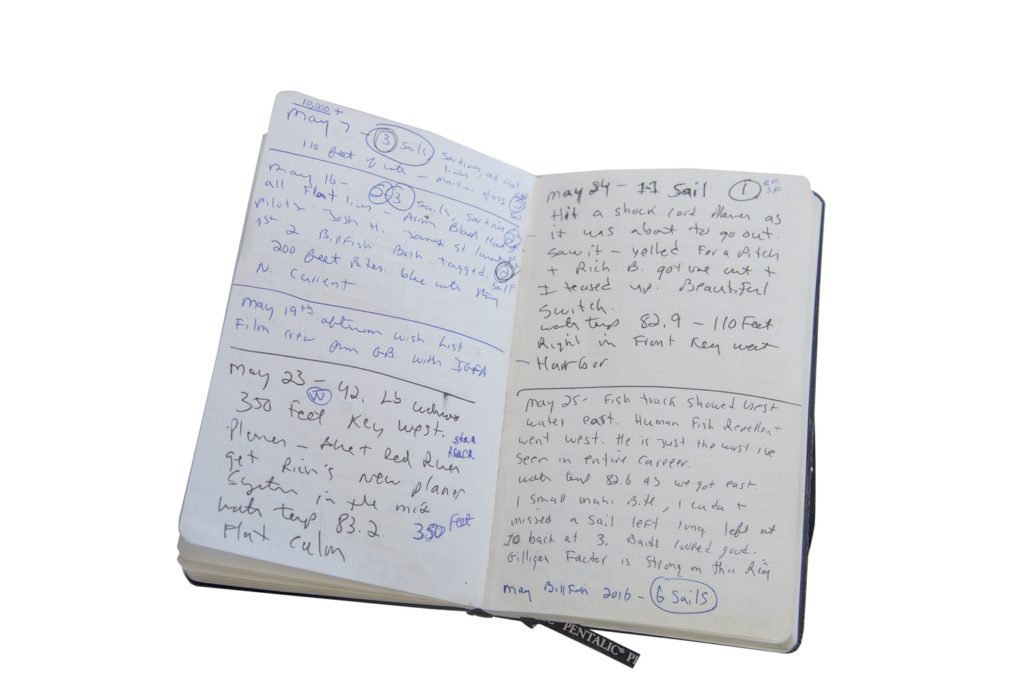 10,000 +
May 7 - 3 Sails
110 feet of water -
May 16 - 2 3 Sails,
all Flat lines -
pilots - Josh H. James St
1st 2 Billfish Both tagged.
200 feet blue with strong
N. Current
May 19th afternoon wish list.
Film new from G.B. with IGFA
May 23 - 42. Lb wahoo
W
350 feet Key West.
Planer - Blue + Red
get Rich's new planer
System in the mix
Water temp 83.2 350 Feet
Flat Calm
May 24 - 1-1 Sail 1
Hit a shock cord Planer as
it was about to go out.
Saw it - yelled For a Pitch
+ Rich B. got one out +
I teased up. Beautiful
Switch.
water temp 82.9 - 110 Feet
Right in Front Key west
Harbor
May 25 - Fish track showed best
water east. Human Fish Repellent
went west. He is just the worst I've
seen in entire career.
water temp 82.6 as we got east.
1 small mahi Bite, 1 cuda +
missed a Sail left long left at
10 back at 3. Baits looked good.
Gilligan Factor is Strong on this Rig
May Billfish 2016 - 6 Sails
PENTALIC®